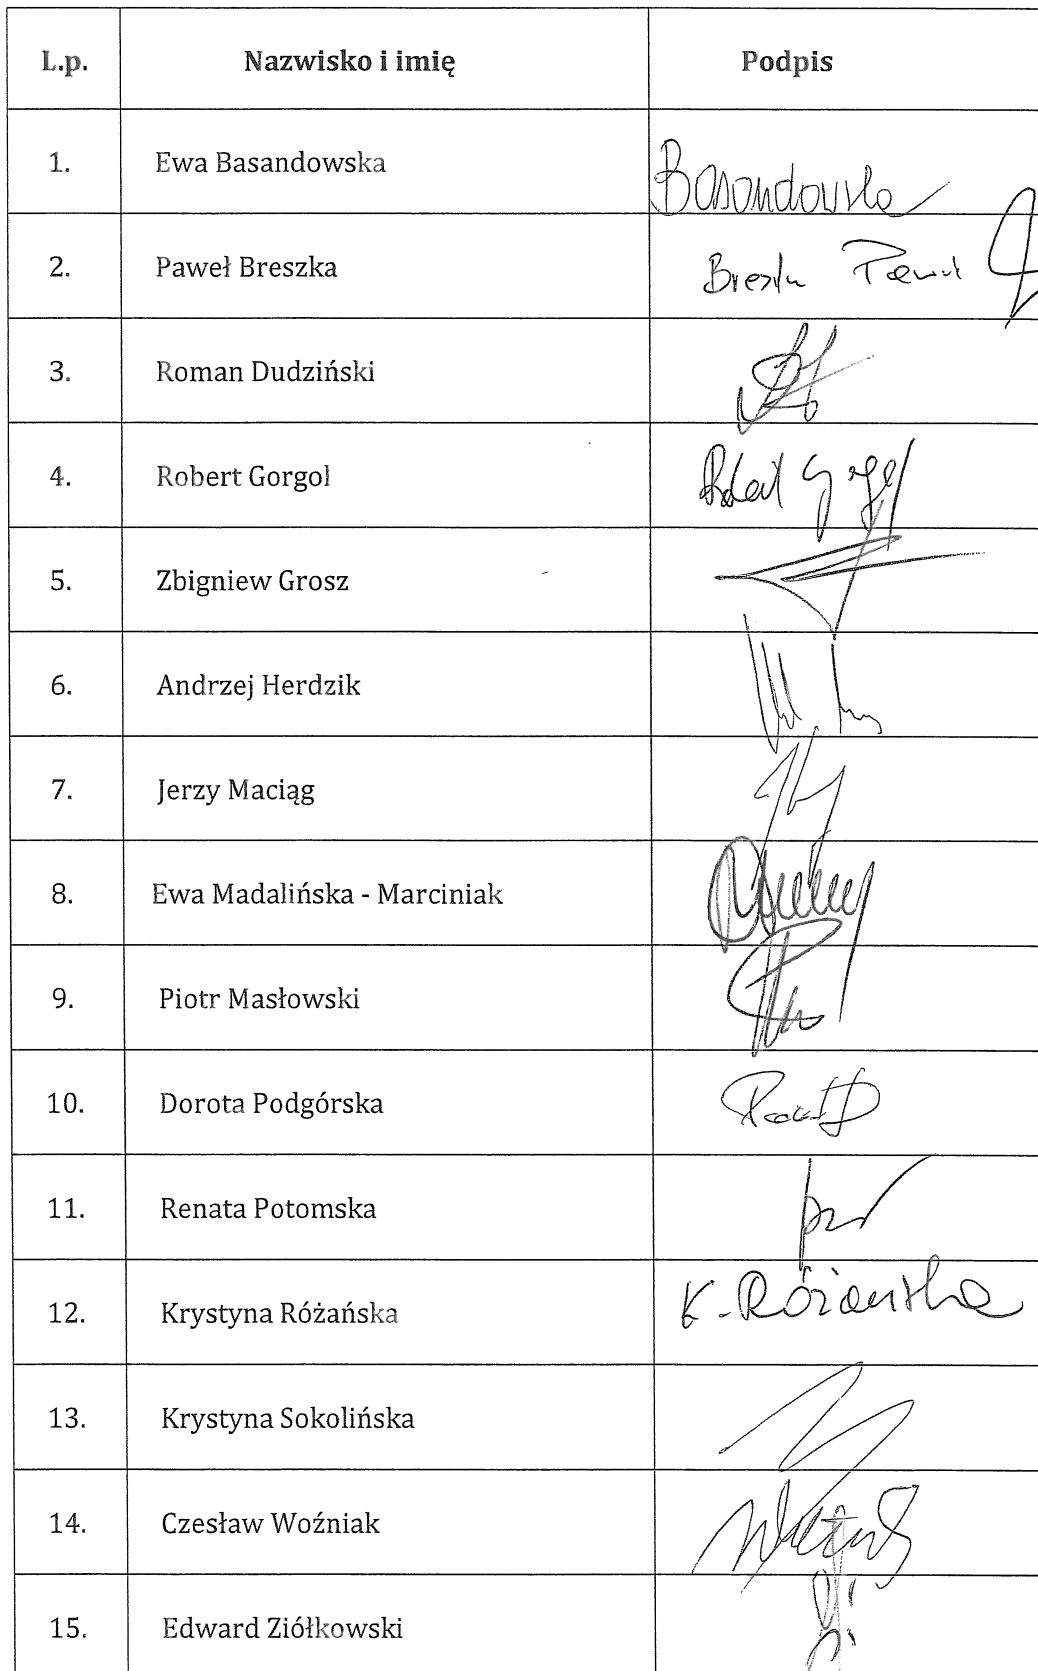 L.p. Nazwisko i imię Podpis
1. Ewa Basandowska Basandowska
2. Paweł Breszka
3. Roman Dudziński
4. Robert Gorgol Robert Gorgol
5. Zbigniew Grosz
6. Andrzej Herdzik
7. Jerzy Maciąg
8. Ewa Madalińska - Marciniak
9. Piotr Masłowski
10. Dorota Podgórska
11. Renata Potomska
12. Krystyna Różańska K. Różańska
13. Krystyna Sokolińska
14. Czesław Woźniak
15. Edward Ziółkowski